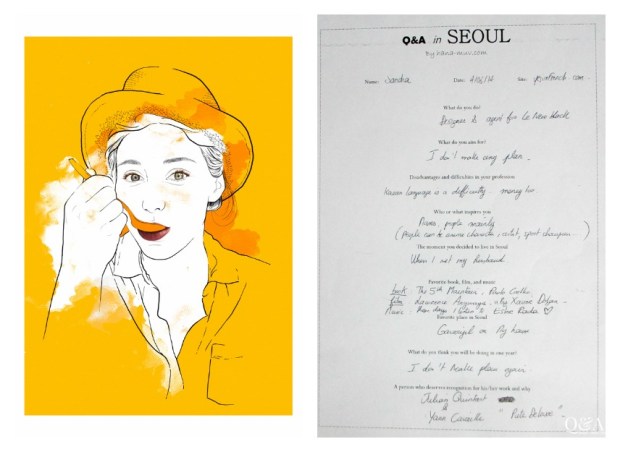 Q&A in SEOUL
By hana-muu.com
Name: Sandra Date: 4/06/16 Site:
What do you do?
Designer & agent for Le New Black
What do you aim for?
I don't make any plan.
Disadvantages and difficulties in your profession
Korean language is a difficulty... money too
Who or what inspires you
people mainly
(People can be anime character, artist, sport champion...)
The moment you decided to live in Seoul
When I met my husband
Favorite book, film, and music
book: The 5th Mountain, Paulo Coelho
film: Laurence Anyways, by Xavier Dolan
Favorite place in Seoul
or my home
What do you think you will be doing in one year?
I don't make plan again
A person who deserves recognition for his/her work and why
Julian Quintart
&
Q&A